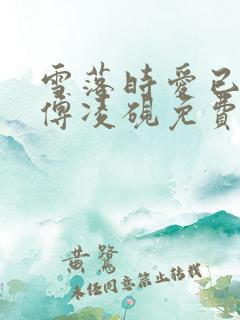 雪落時愛已
傅凌硯免費
黃鷺
未經同意禁止轉載